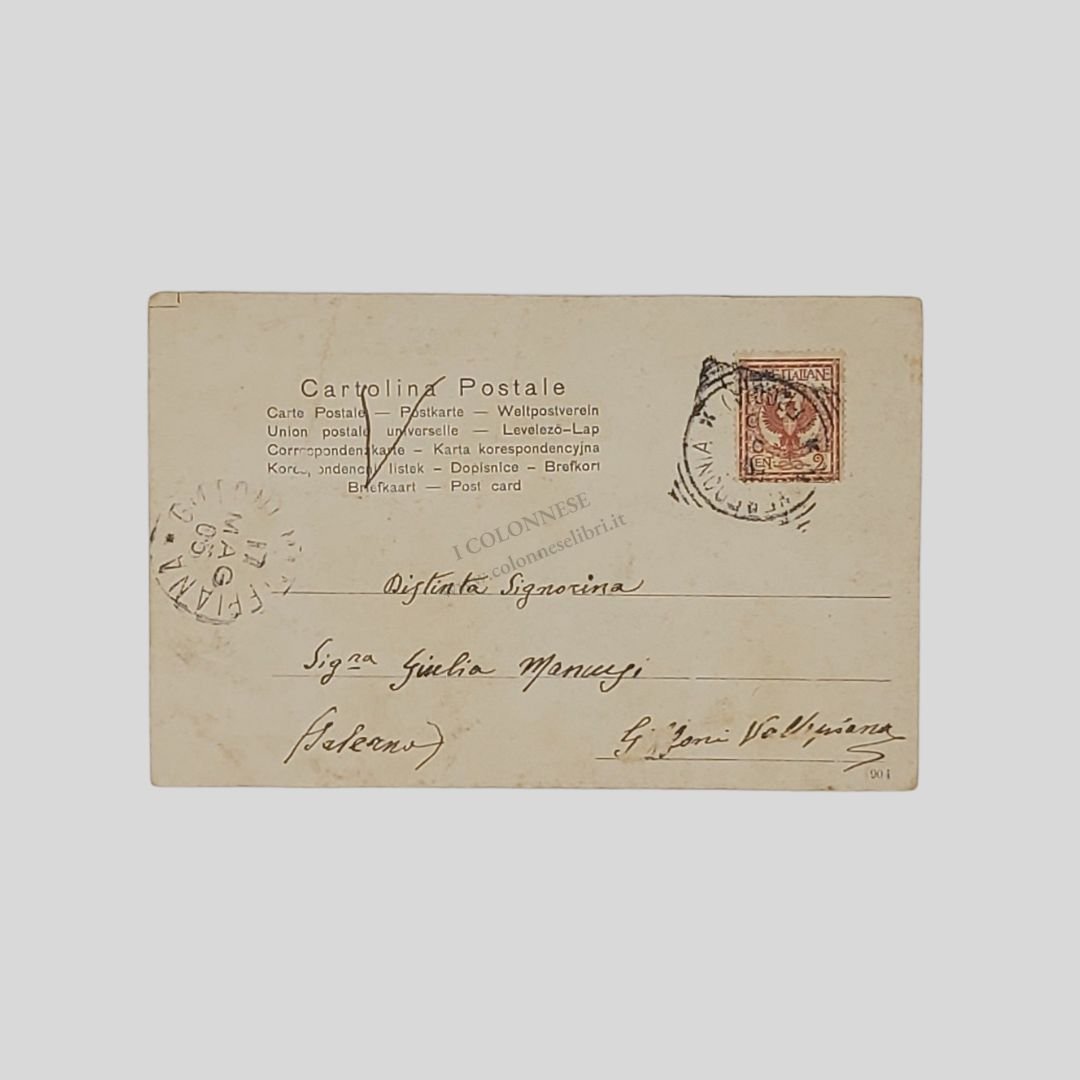 Cartolina Postale
Carte Postale — Postkarte — Weltpostverein
Union postale universelle — Levelező-Lap
Correspondenzkarte – Karta korespondencyjna
Korespondenční listek – Dopisnice – Brefkort
Briefkaart — Post card
ITALIANE
2
17
MAG
05
I COLONNESE
www.colonneselibri.it
Distinta Signorina
Sigra Giulia
(Salerno)
Giffoni
904